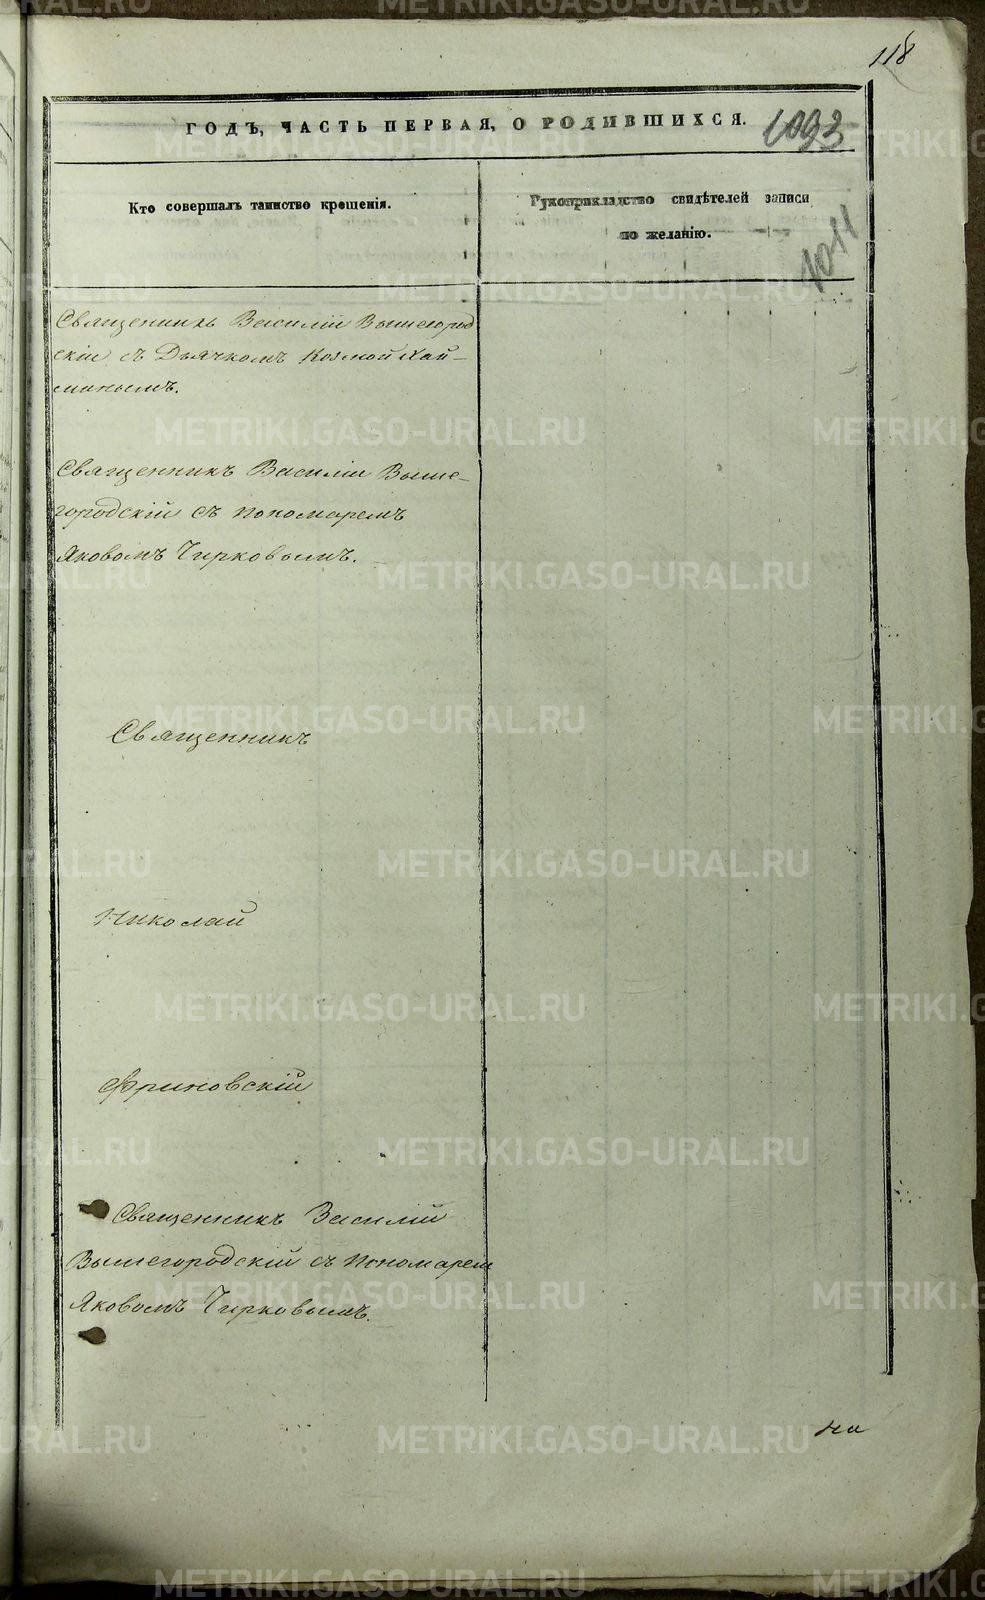 118
ГОДЪ, ЧАСТЬ ПЕРВАЯ, О РОДИВШИХСЯ.
1093
Кто совершалъ таинство крещенія.
Рукоприкладство свидѣтелей записи
по желанію.
1011
Священникъ Василій Вышегород
скій съ Дьячкомъ Козмой Хай-
минымъ.
Священникъ Василій Выше-
городскій съ пономаремъ
Яковомъ Чирковымъ.
Священникъ
Николай
Фриновскій
Священникъ Василій
Вышегородскій съ пономарем
Яковомъ Чирковымъ.
На
METRIKI.GASO-URAL.RU